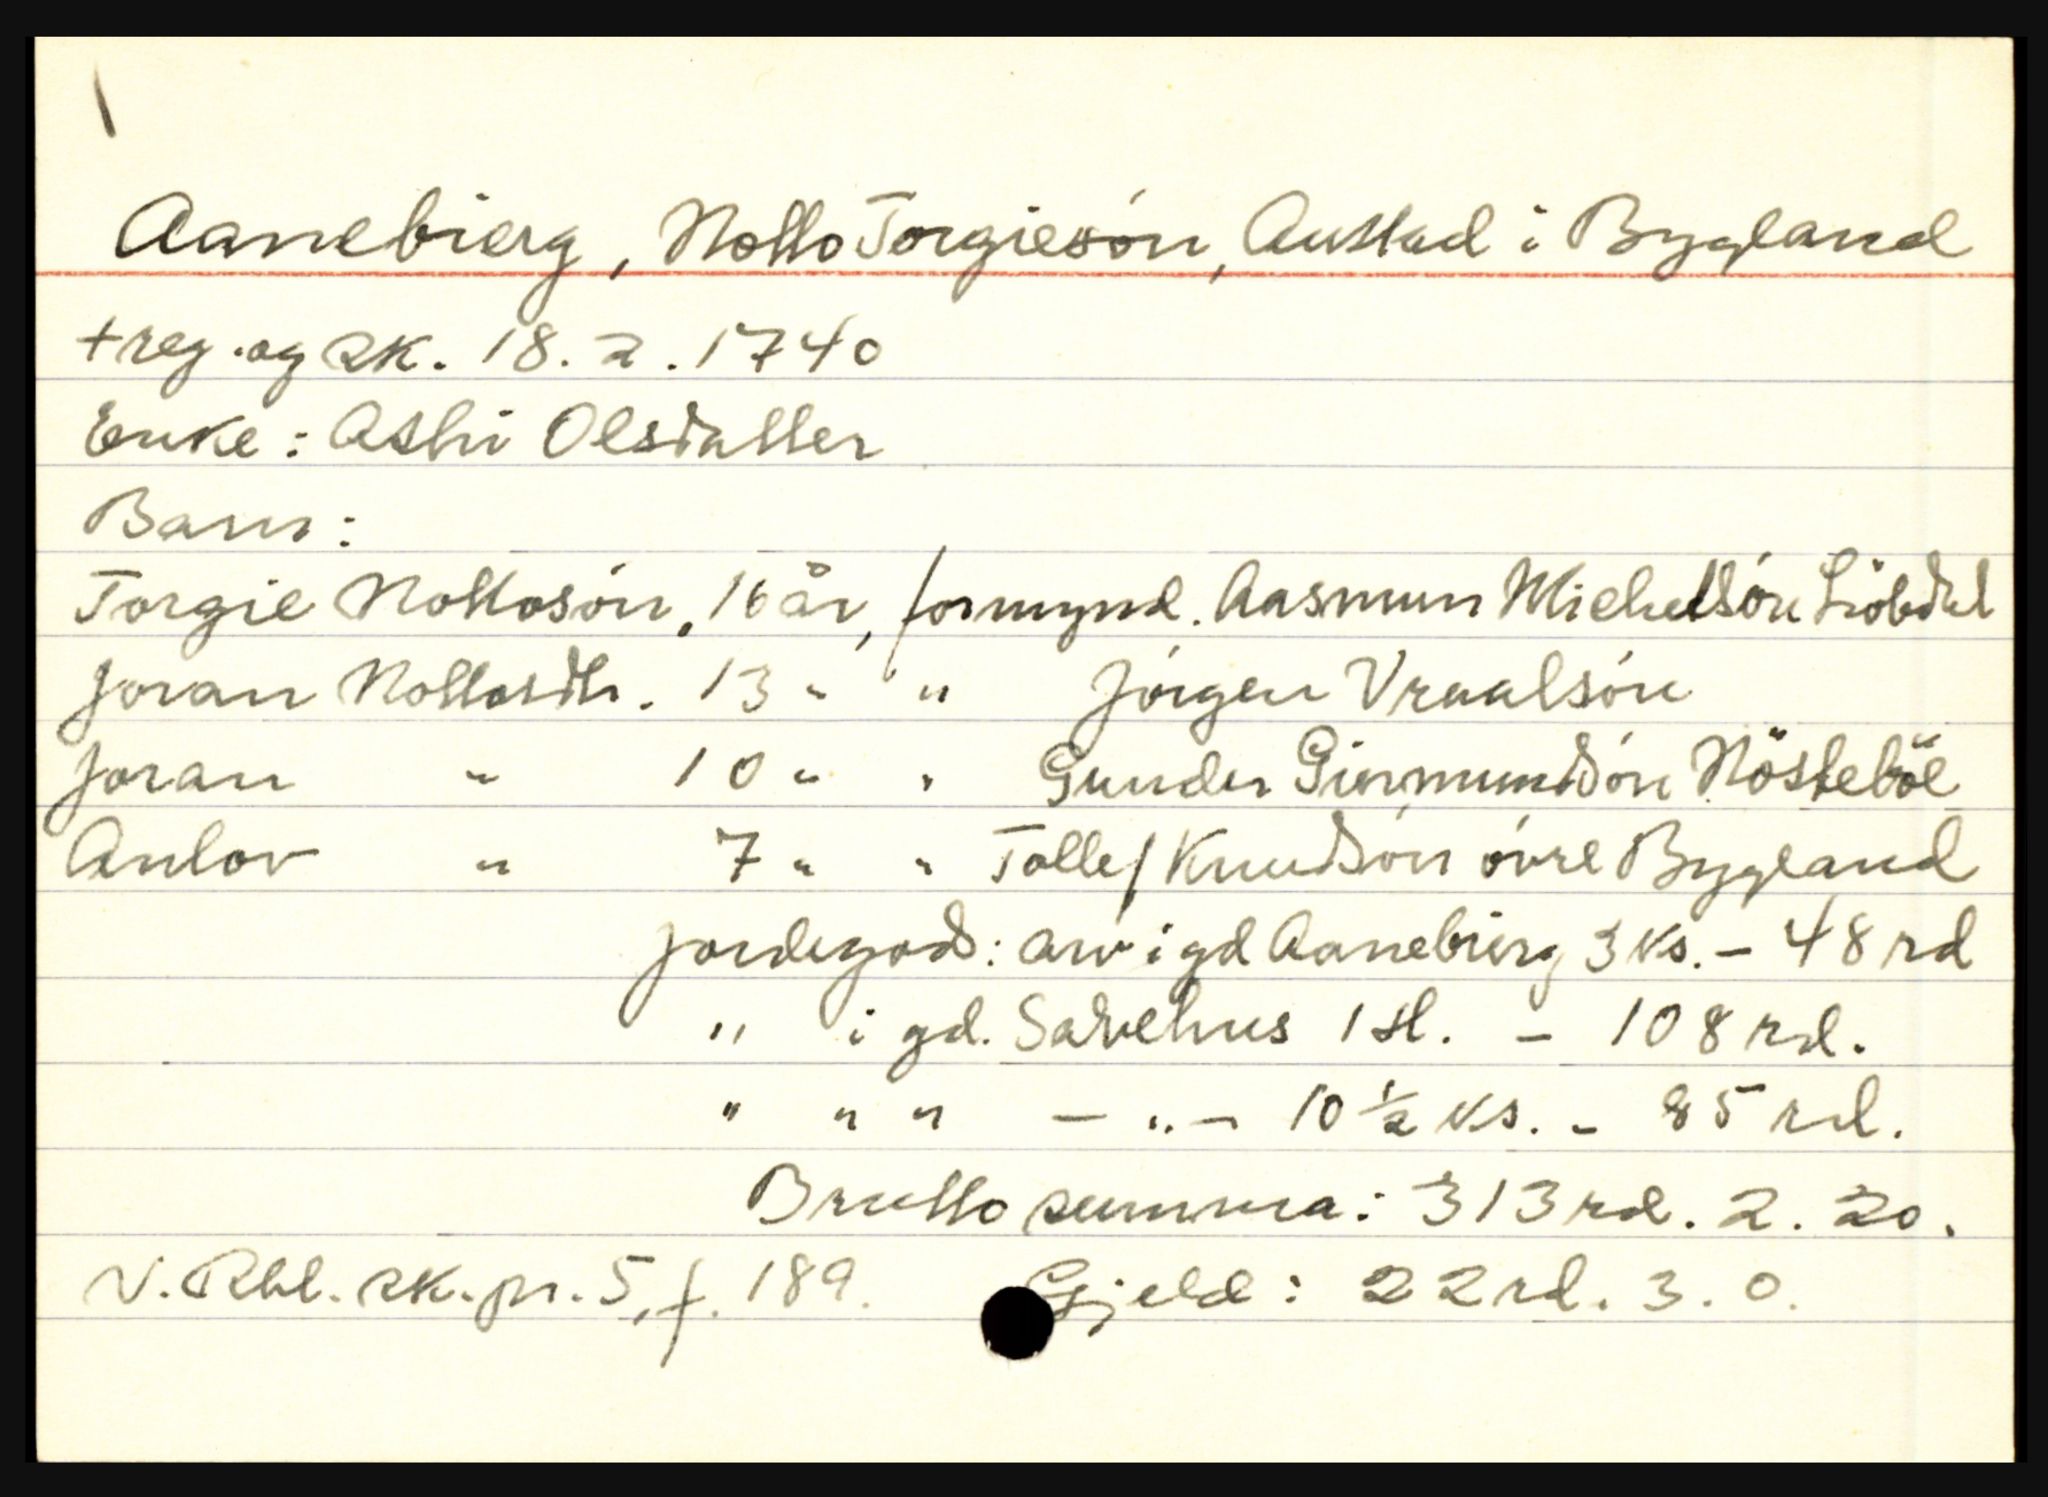 Aanebierg, Notto Torgiesón, Austad i Bygland
+ reg. og sk. 18. 2. 1740
Enke: Aslni Olsdatter
Barn:
Torgie Nottosón, 16 år, formynd. Aasmun Michelsón Liöbdal
Joran Nottosdtr. 13 " " Jórgen Vraalsón
Joran " 10 " " Gunder Giermundsón Nösteböe
Anlov " 7 " " Tollef Knudsón óvre Bygland
Jordegods: arv i gd Aanebierg 3 ks. - 48 rd
" i gd. Salvehus 1 sl. - 108 rd.
" " " - " - 10 ½ ks. - 85 rd.
Brutto summa: 313 rd. 2. 20.
N. Rbl. sk. pr. 5, f. 189. Gjeld: 22 rd. 3. 0.